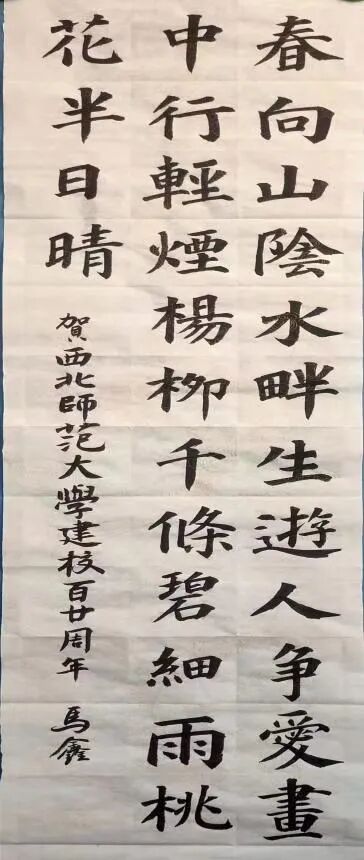 春向山陰水畔生遊人争愛畫
中行輕煙楊柳千條碧細雨桃
花半日晴
賀西北師范大學建校百廿周年 馬鑫